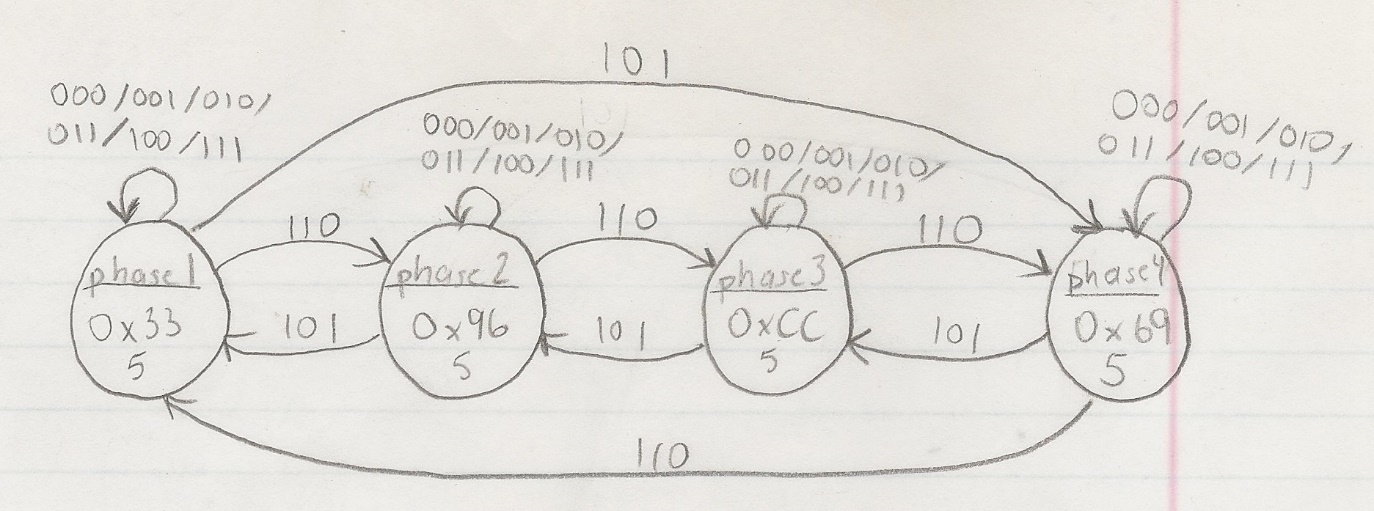 101
000/001/010/
011/100/111
000/001/010/
011/100/111
000/001/010/
011/100/111
000/001/010/
011/100/111
110
110
110
phase1
0x33
5
phase2
0x96
5
phase3
0xCC
5
phase4
0x69
5
101
101
101
110